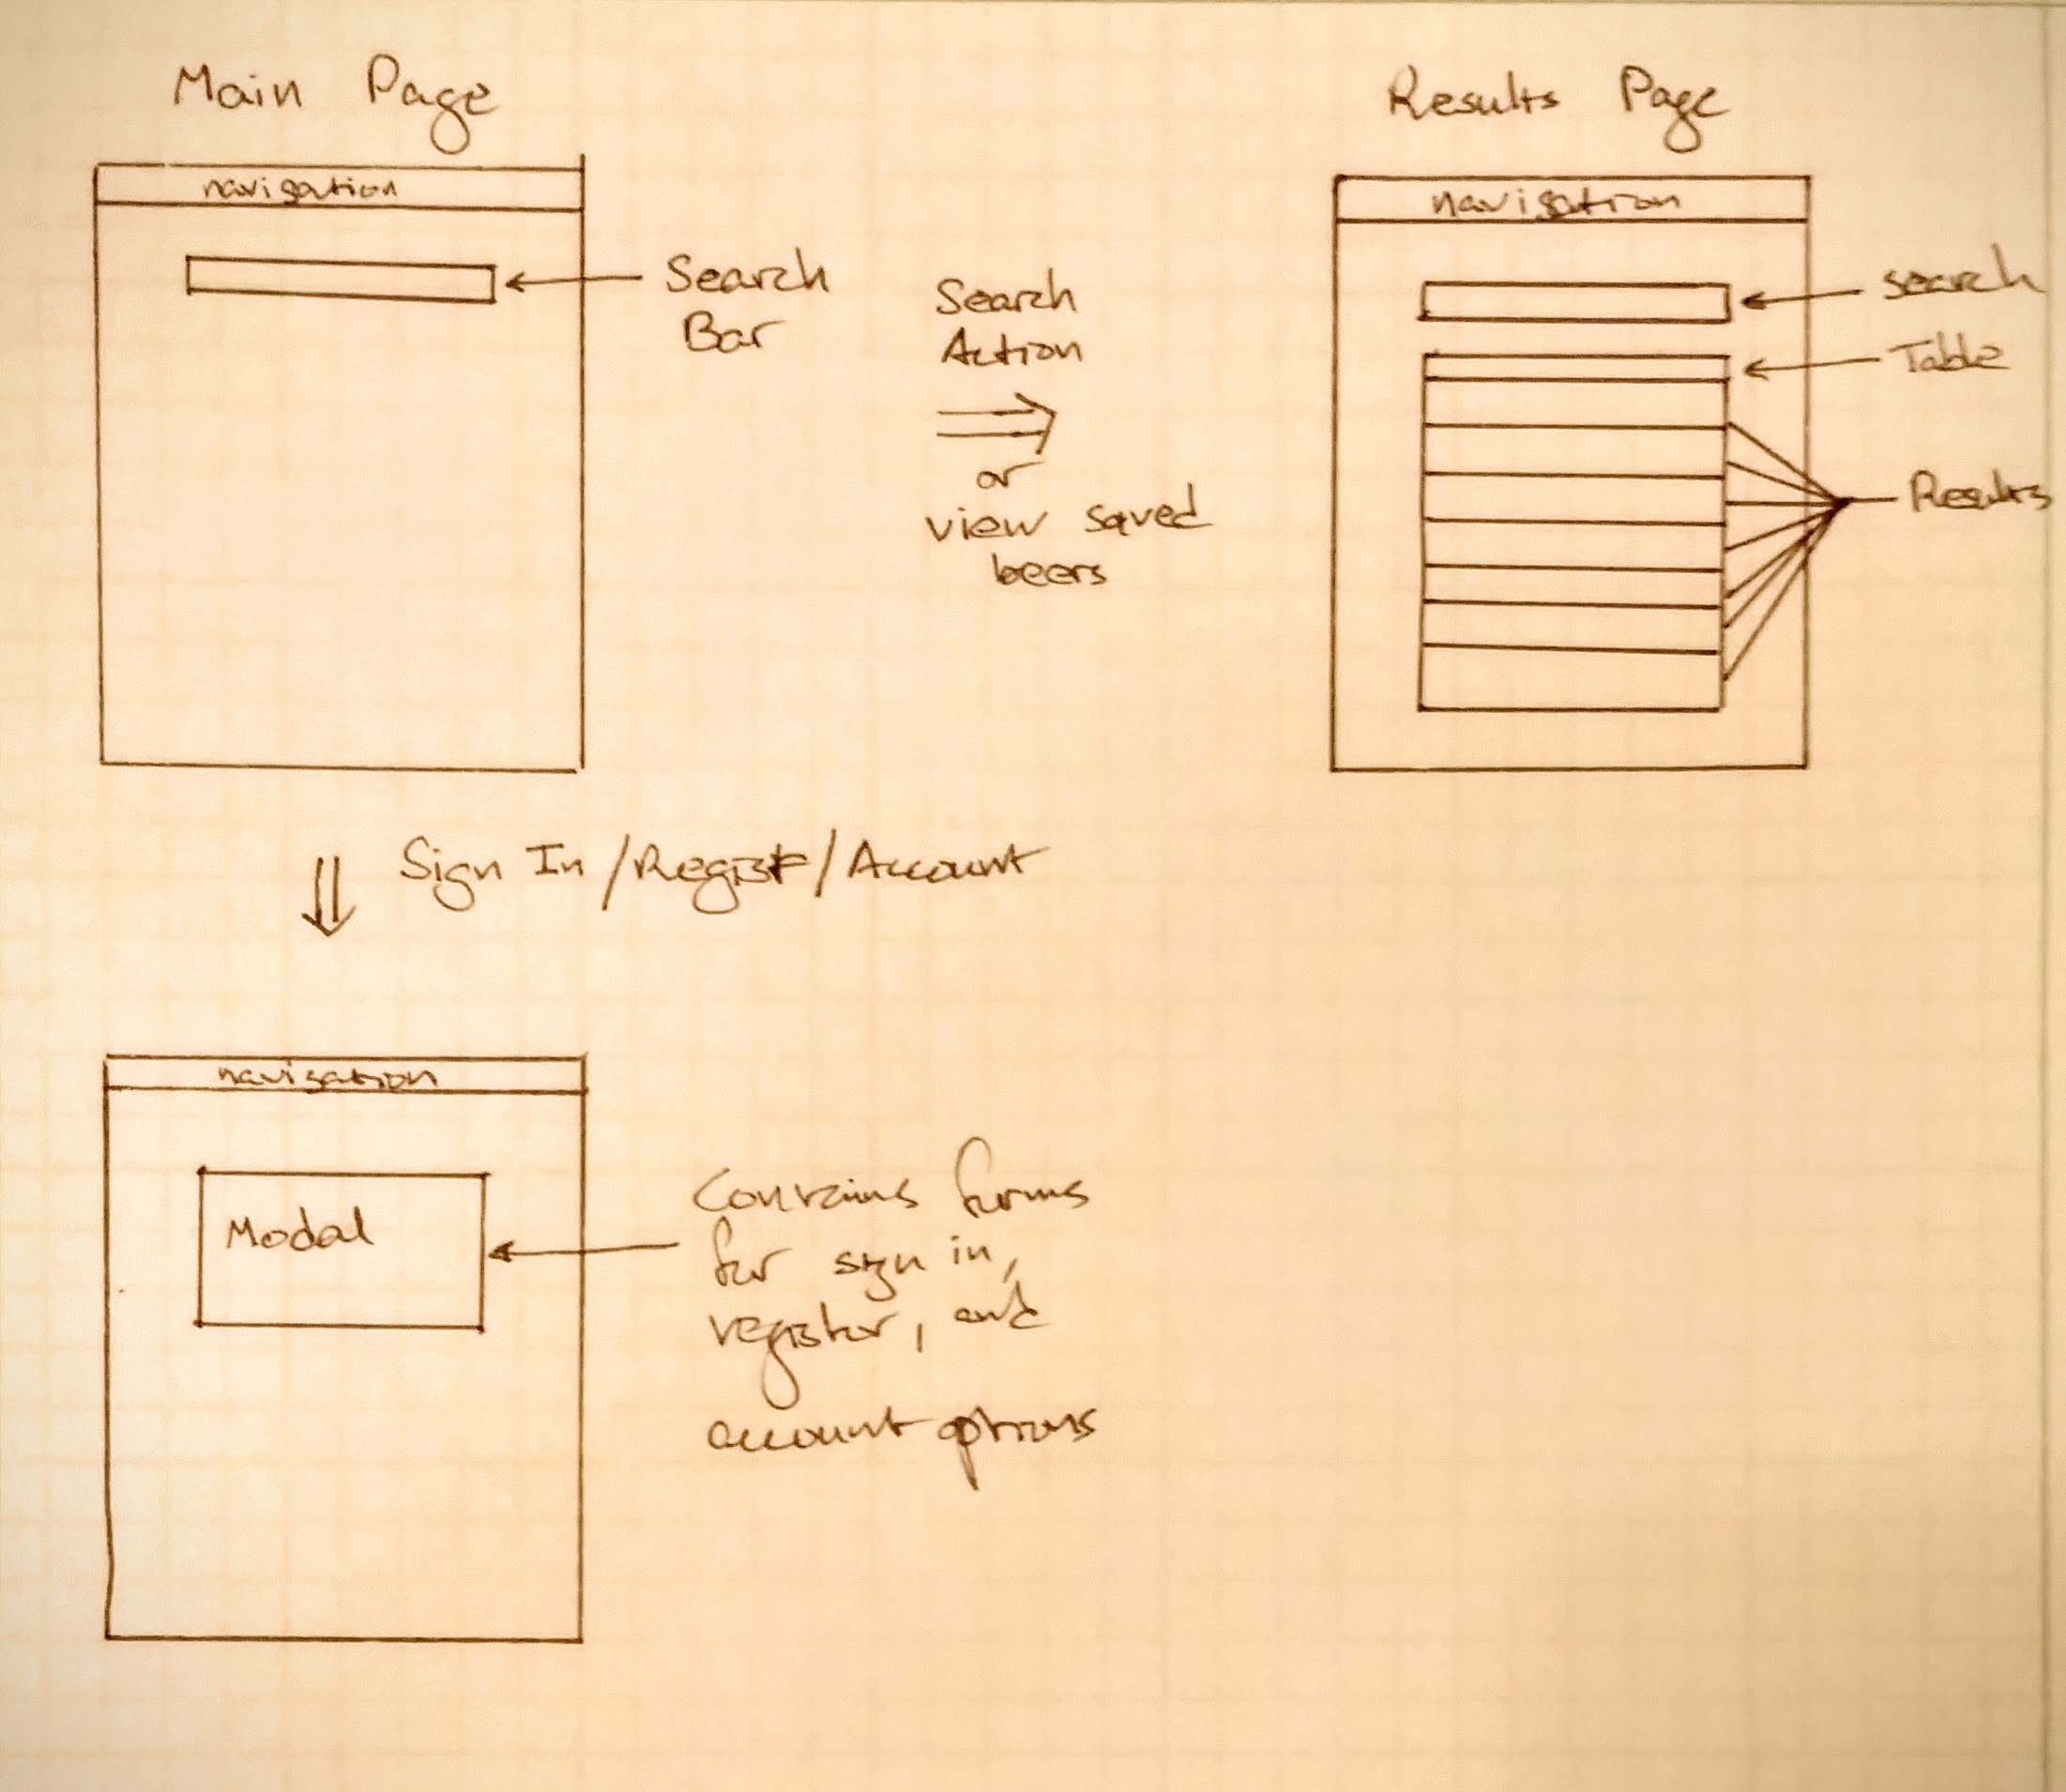 Main Page
navigation
Search
Bar
Search
Action
or
view saved
beers
Results Page
navigation
search
Table
Results
Sign In / Registr / Account
navigation
Modal
Contains forms
for sign in,
register, and
account options